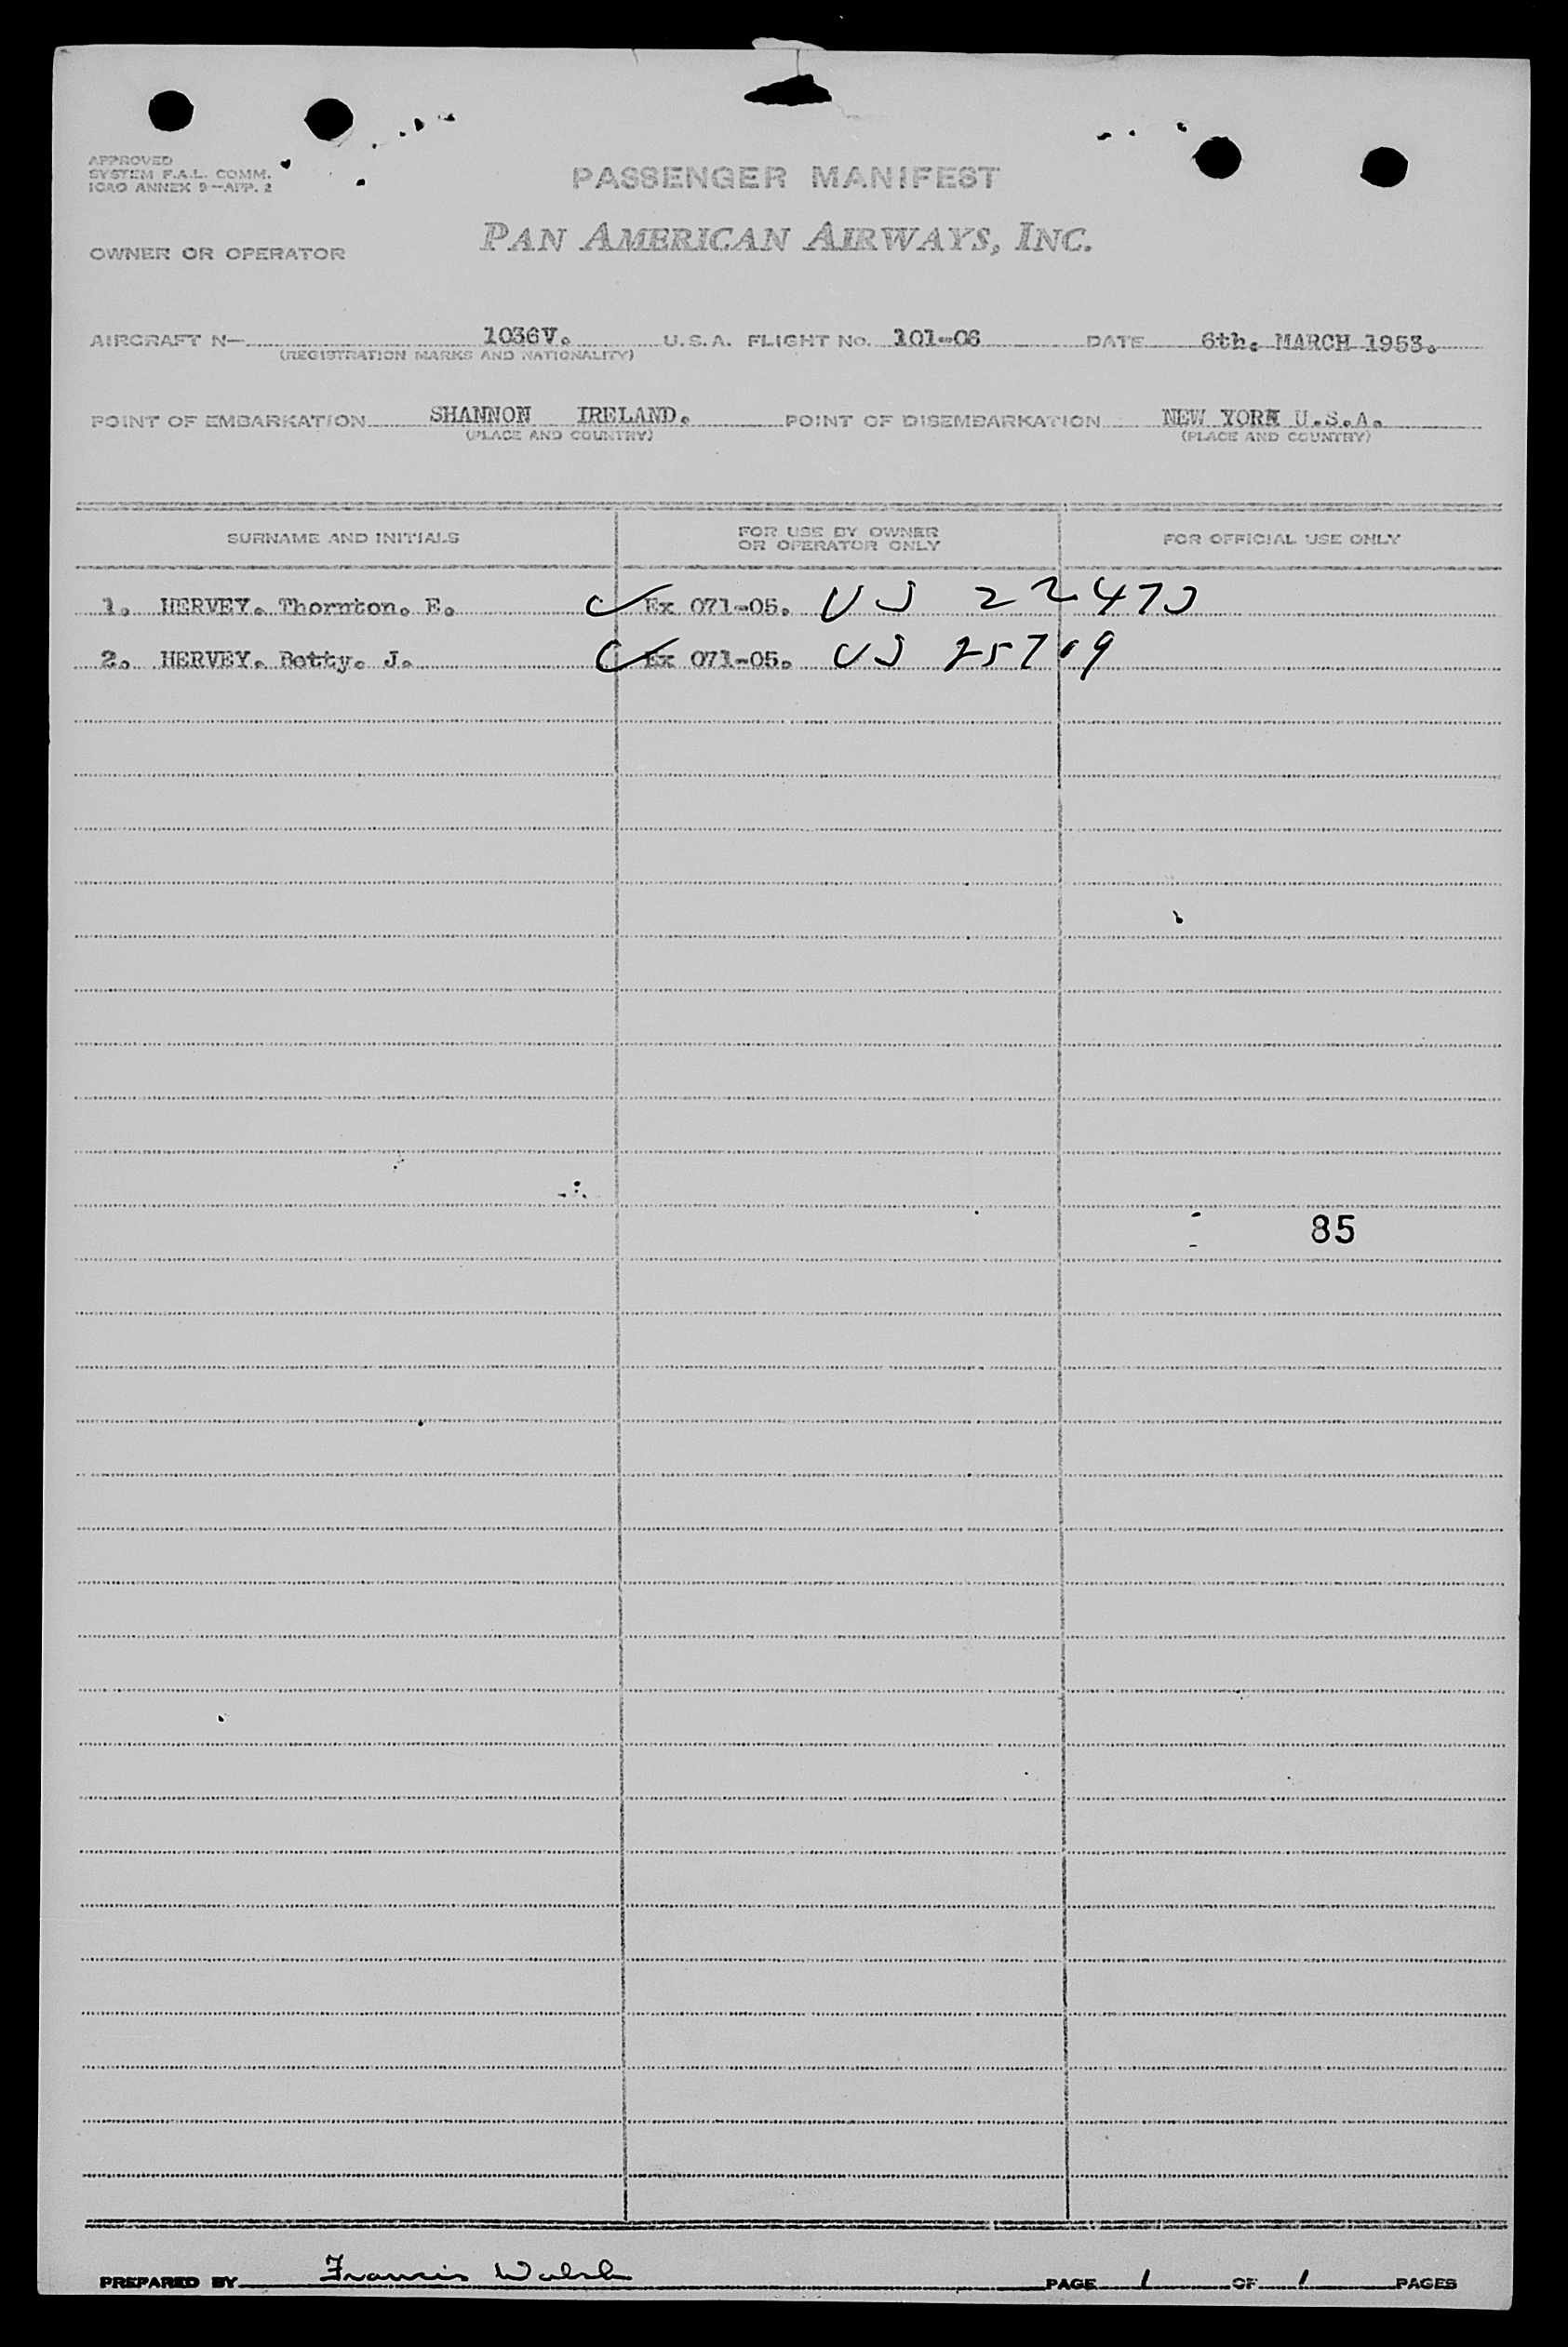 APPROVED
SYSTEM F.A.L. COMM.
ICAO ANNEX 9—APP. 2
PASSENGER MANIFEST
OWNER OR OPERATOR
PAN AMERICAN AIRWAYS, INC.
AIRCRAFT N— 1036V. U.S.A. FLIGHT NO. 101-06 DATE 6th. MARCH 1953.
(REGISTRATION MARKS AND NATIONALITY)
POINT OF EMBARKATION SHANNON IRELAND. POINT OF DISEMBARKATION NEW YORK U.S.A.
(PLACE AND COUNTRY) (PLACE AND COUNTRY)
SURNAME AND INITIALS FOR USE BY OWNER OR OPERATOR ONLY FOR OFFICIAL USE ONLY
1. HERVEY. Thornton. E. Ex 071-05. US
2. HERVEY. Betty. J. Ex 071-05. US
85
PREPARED BY Francis Walsh PAGE 1 OF 1 PAGES